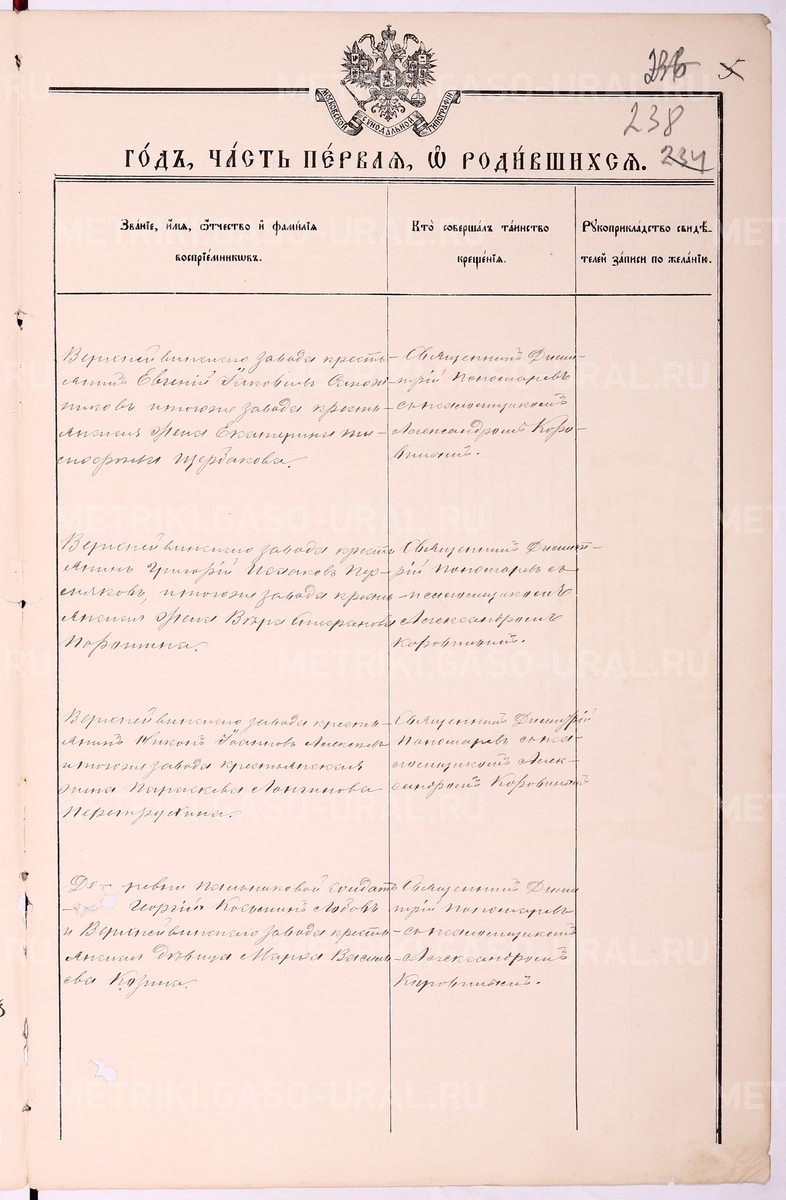 МОСКОВСКОЙ СѴНОДАЛЬНОЙ ТИПОГРАФІИ
5
238
234
ГО́ДЪ, ЧА́СТЬ ПЕ́РВАЯ, Ѽ РОДИ́ВШИХСЯ.
Зва́нїе, и҆́мя, ѻ҆́тчество и҆ фами́лїя
воспрїе́мникѡвъ.
Кто̀ соверша́лъ та́инство
креще́нїя.
Рꙋкоприкла́дство свидѣ́-
телей за́писи по жела́нїю.
Верхнейвинскаго завода кресть-
янинъ Евгеній Іаковлевъ
никовъ и тогоже завода кресть-
янская жена Екатерина
Щербакова.
Священникъ Дими-
трій Пономаревъ
съ псаломщикомъ
Александромъ Коро-
винскій.
Верхнейвинскаго завода кресть
янинъ Григорій Исааковъ Пер-
мяковъ, и тогоже завода кресть
янская жена Вѣра Стефанова
Поротина.
Священникъ Димит-
рій Пономаревъ съ
псаломщикомъ
Александромъ
Коровинскій.
Верхнейвинскаго завода кресть-
янинъ Никонъ Іоанновъ Алексѣевъ
и тогоже завода крестьянская
жена Параскева Лонгинова
Перетрухина.
Священникъ Димитрій
Пономаревъ съ пса-
ломщикомъ Алек-
сандромъ Коровинскій
Де- ревни Пальниковой солдатъ
Георгій Косьминъ Лобовъ
и Верхнейвинскаго завода кресть-
янская дѣвица Марія Василь-
ева Козина.
Священникъ Дими
трій Пономаревъ
съ псаломщикомъ
Александромъ
Коровинскій.
METRIKI.GASO-URAL.RU